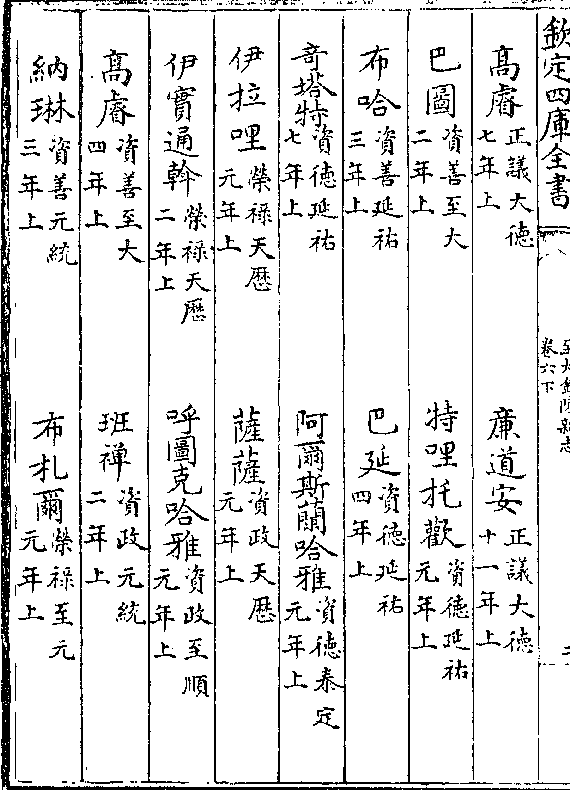 欽定四庫全書
至大金陵新志
卷六下
二
高睿 正議大德七年上 廉道安 正議大德十一年上
巴圖 資善至大二年上 特哩托歡 資德延祐元年上
布哈 資善延祐三年上 巴延 資德延祐四年上
竒塔特 資德延祐七年上 阿爾斯蘭哈雅 資德泰定元年上
伊拉哩 榮禄天厯元年上 薩薩 資政天厯元年上
伊實通斡 榮禄天厯二年上 呼圖克哈雅 資政至順元年上
高睿 資善至大四年上 班禪 資政元統二年上
納琳 資善元統三年上 布札爾 榮禄至元元年上